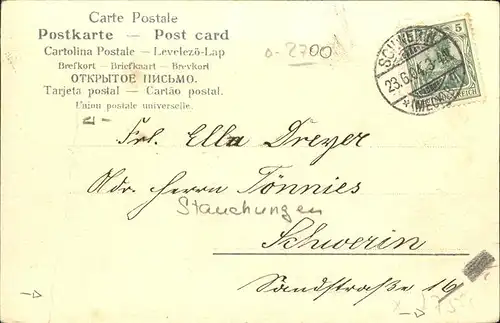 Carte Postale
Postkarte — Post card
Cartolina Postale — Levelező-Lap
Brefkort — Briefkaart — Brevkort
ОТКРЫТОЕ ПИСЬМО.
Tarjeta postal — Cartão postal.
Union postale universelle.
D-2700
5
SCHWERIN
23.6.04.3-4N.
*(MECKL)
REICH
Frl. Ella Dreyer
Adr. Herrn Tönnies
Stauchungen
Schwerin
Sandstraße 16